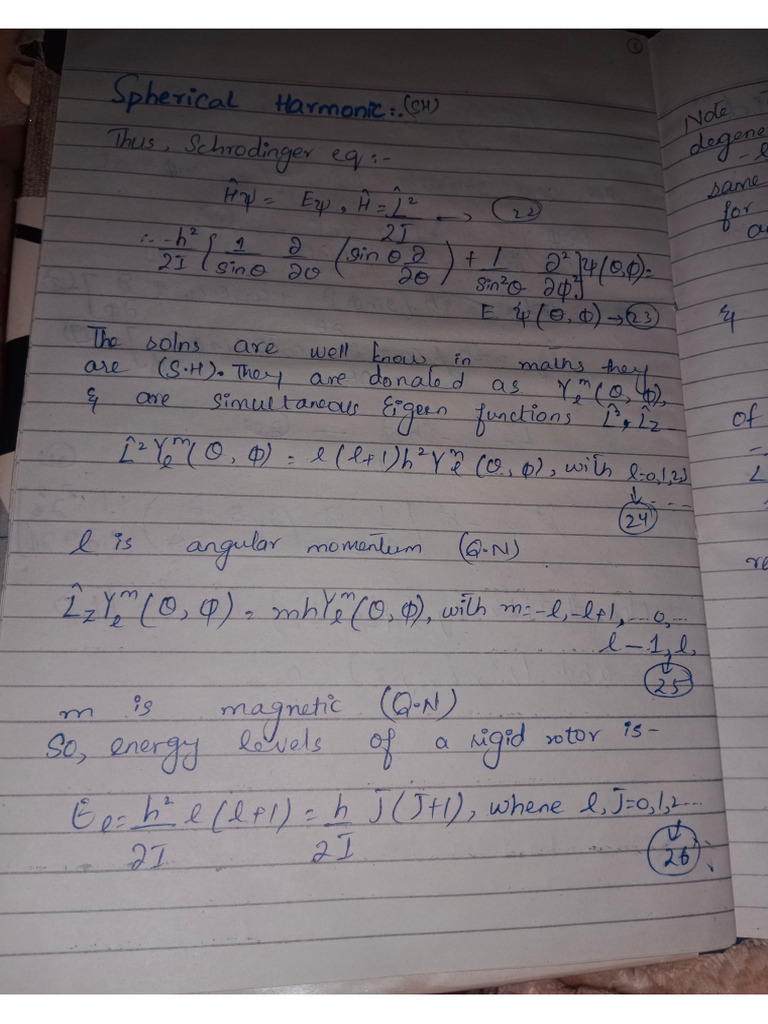 Spherical Harmonic:. (SH)
Thus, Schrodinger eq :-
Ĥψ = Eψ, Ĥ = L̂²/2I → (22)
∴ -h²/2I [1/sinθ ∂/∂θ (sinθ ∂/∂θ) + 1/sin²θ ∂²/∂φ²] ψ(θ,φ) =
E ψ(θ,φ) → (23)
The solns are well know in maths they
are (S.H). They are donated as Yₗᵐ(θ, φ),
& are simultaneous Eigeen functions L̂², L̂z
L̂²Yₗᵐ(θ, φ) = l(l+1)h²Yₗᵐ(θ, φ), with l=0,1,2,3
....
↓
(24)
l is angular momentum (Q.N)
L̂zYₗᵐ(θ, φ) = mhYₗᵐ(θ, φ), with m=-l,-l+1,...0,...
l-1,l,
↓
(25)
m is magnetic (Q.N)
So, energy levels of a rigid rotor is-
Eₗ= h²/2I l(l+1) = h/2I J(J+1), where l,J=0,1,2...
↓
(26)
Note
degene
-l
same
for
a
&
of
L
re